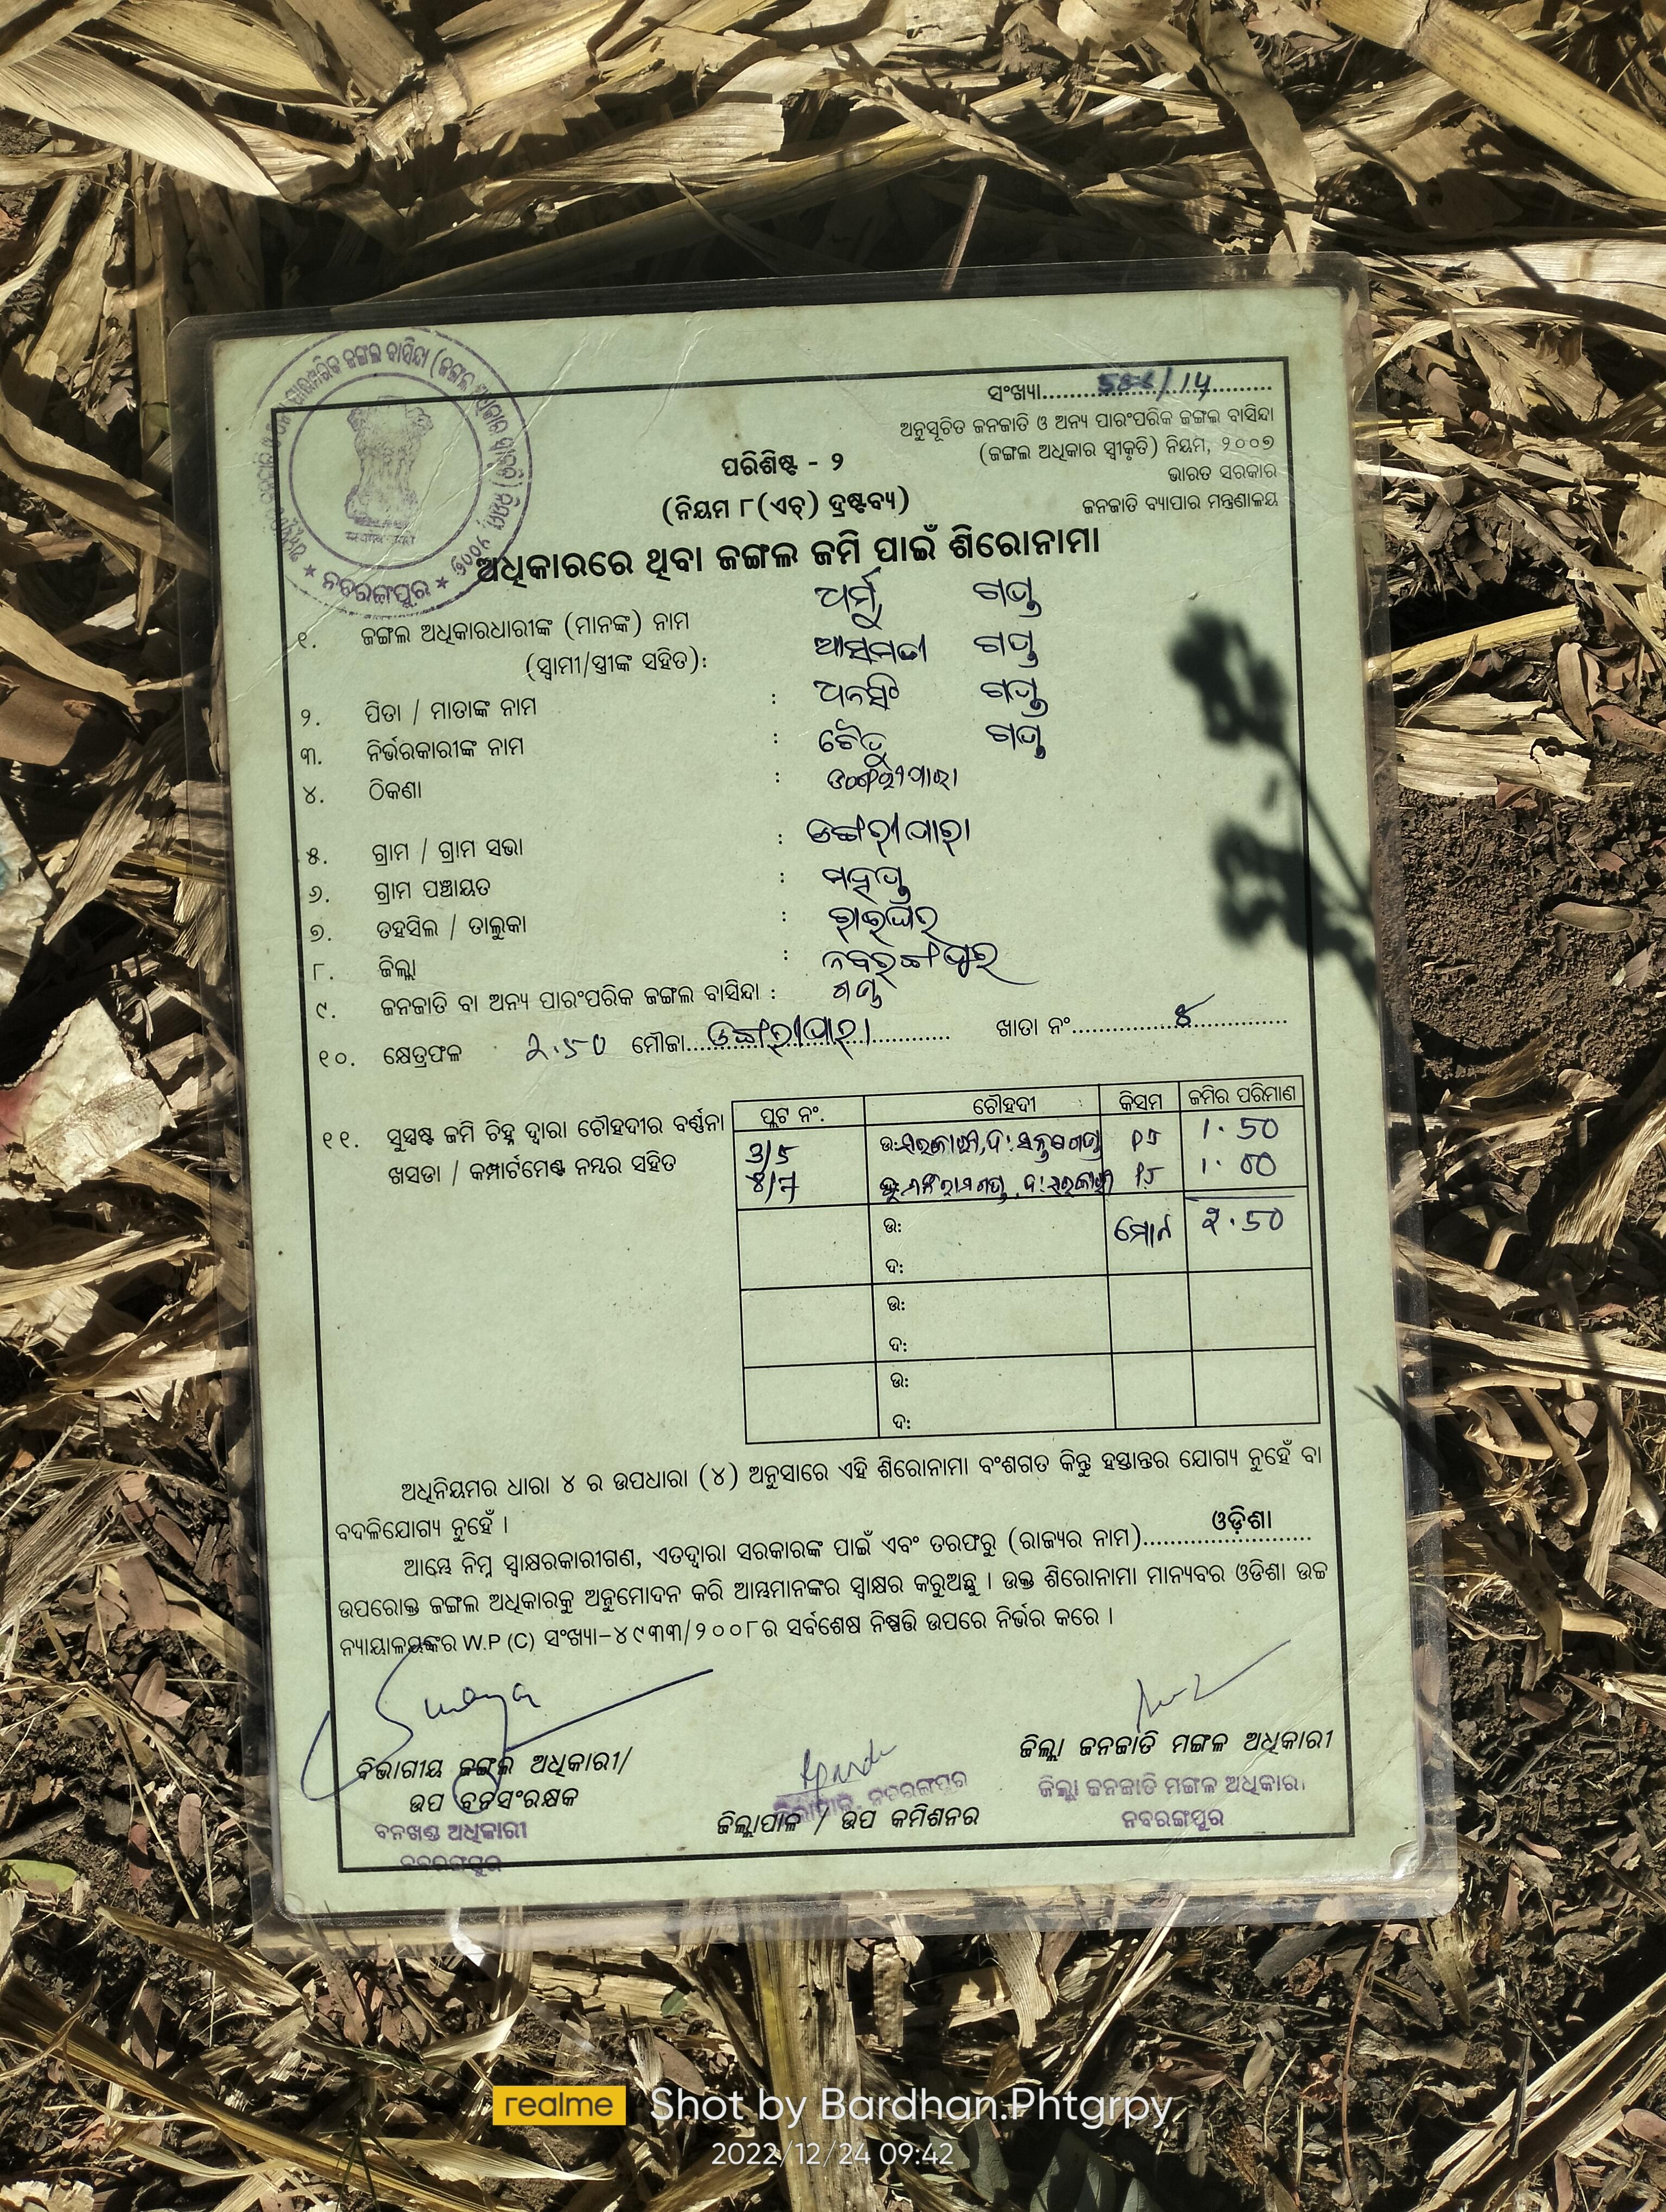 ସଂଖ୍ୟା..../14
ଅନୁସୂଚିତ ଜନଜାତି ଓ ଅନ୍ୟ ପାରଂପରିକ ଜଙ୍ଗଲ ବାସିନ୍ଦା
(ଜଙ୍ଗଲ ଅଧିକାର ସ୍ୱୀକୃତି) ନିୟମ, ୨୦୦୭
ଭାରତ ସରକାର
ଜନଜାତି ବ୍ୟାପାର ମନ୍ତ୍ରଣାଳୟ
ପରିଶିଷ୍ଟ - ୨
(ନିୟମ ୮(ଏଚ୍) ଦ୍ରଷ୍ଟବ୍ୟ)
ଅଧିକାରରେ ଥିବା ଜଙ୍ଗଲ ଜମି ପାଇଁ ଶିରୋନାମା
ନବରଙ୍ଗପୁର
୧. ଜଙ୍ଗଲ ଅଧିକାରଧାରୀଙ୍କ (ମାନଙ୍କ) ନାମ ଧର୍ମୁ ଗଣ୍ଡ
(ସ୍ୱାମୀ/ସ୍ତ୍ରୀଙ୍କ ସହିତ): ଆସମତୀ ଗଣ୍ଡ
୨. ପିତା / ମାତାଙ୍କ ନାମ : ଧନସିଂ ଗଣ୍ଡ
୩. ନିର୍ଭରକାରୀଙ୍କ ନାମ : ଚୈତୁ ଗଣ୍ଡ
୪. ଠିକଣା :
୫. ଗ୍ରାମ / ଗ୍ରାମ ସଭା : ଡଙ୍ଗରୀପାରା
୬. ଗ୍ରାମ ପଞ୍ଚାୟତ :
୭. ତହସିଲ / ତାଲୁକା : ରାଇଘର
୮. ଜିଲ୍ଲା : ନବରଙ୍ଗପୁର
୯. ଜନଜାତି ବା ଅନ୍ୟ ପାରଂପରିକ ଜଙ୍ଗଲ ବାସିନ୍ଦା : ଗଣ୍ଡ
୧୦. କ୍ଷେତ୍ରଫଳ 2.50 ମୌଜା....ଡଙ୍ଗରୀପାରା.... ଖାତା ନଂ....୪....
୧୧. ସୁସ୍ପଷ୍ଟ ଜମି ଚିହ୍ନ ଦ୍ୱାରା ଚୌହଦୀର ବର୍ଣ୍ଣନା
ଖସଡା / କମ୍ପାର୍ଟମେଣ୍ଟ ନମ୍ବର ସହିତ
ପ୍ଲଟ ନଂ. ଚୌହଦୀ କିସମ ଜମିର ପରିମାଣ
3/5 ଉ: ସରକାରୀ, ଦ: ଗଣ୍ଡ PJ 1.50
ଉ: ଦ: ସରକାରୀ PJ 1.00
ଉ: ମୋଟ 2.50
ଦ:
ଉ:
ଦ:
ଉ:
ଦ:
ଅଧିନିୟମର ଧାରା ୪ ର ଉପଧାରା (୪) ଅନୁସାରେ ଏହି ଶିରୋନାମା ବଂଶଗତ କିନ୍ତୁ ହସ୍ତାନ୍ତର ଯୋଗ୍ୟ ନୁହେଁ ବା
ବଦଳିଯୋଗ୍ୟ ନୁହେଁ ।
ଆମ୍ଭେ ନିମ୍ନ ସ୍ୱାକ୍ଷରକାରୀଗଣ, ଏତଦ୍ୱାରା ସରକାରଙ୍କ ପାଇଁ ଏବଂ ତରଫରୁ (ରାଜ୍ୟର ନାମ)....ଓଡ଼ିଶା....
ଉପରୋକ୍ତ ଜଙ୍ଗଲ ଅଧିକାରକୁ ଅନୁମୋଦନ କରି ଆମ୍ଭମାନଙ୍କର ସ୍ୱାକ୍ଷର କରୁଅଛୁ । ଉକ୍ତ ଶିରୋନାମା ମାନ୍ୟବର ଓଡିଶା ଉଚ୍ଚ
ନ୍ୟାୟାଳୟଙ୍କର W.P (C) ସଂଖ୍ୟା-୪୯୩୩/୨୦୦୮ର ସର୍ବଶେଷ ନିଷ୍ପତ୍ତି ଉପରେ ନିର୍ଭର କରେ ।
ବିଭାଗୀୟ ଜଙ୍ଗଲ ଅଧିକାରୀ/
ଉପ ବନସଂରକ୍ଷକ
ବନଖଣ୍ଡ ଅଧିକାରୀ
ନବରଙ୍ଗପୁର
ଜିଲ୍ଲାପାଳ, ନବରଙ୍ଗପୁର
ଜିଲ୍ଲାପାଳ / ଉପ କମିଶନର
ଜିଲ୍ଲା ଜନଜାତି ମଙ୍ଗଳ ଅଧିକାରୀ
ଜିଲ୍ଲା ଜନଜାତି ମଙ୍ଗଳ ଅଧିକାରୀ
ନବରଙ୍ଗପୁର
realme Shot by Bardhan.Phtgrpy
2022/12/24 09:42